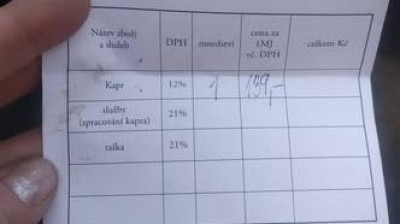 Název zboží
a služeb
DPH
množství
cena za
1MJ
vč. DPH
celkem Kč
Kapr
12%
1
139,-
služby
(zpracování kapra)
21%
taška
21%